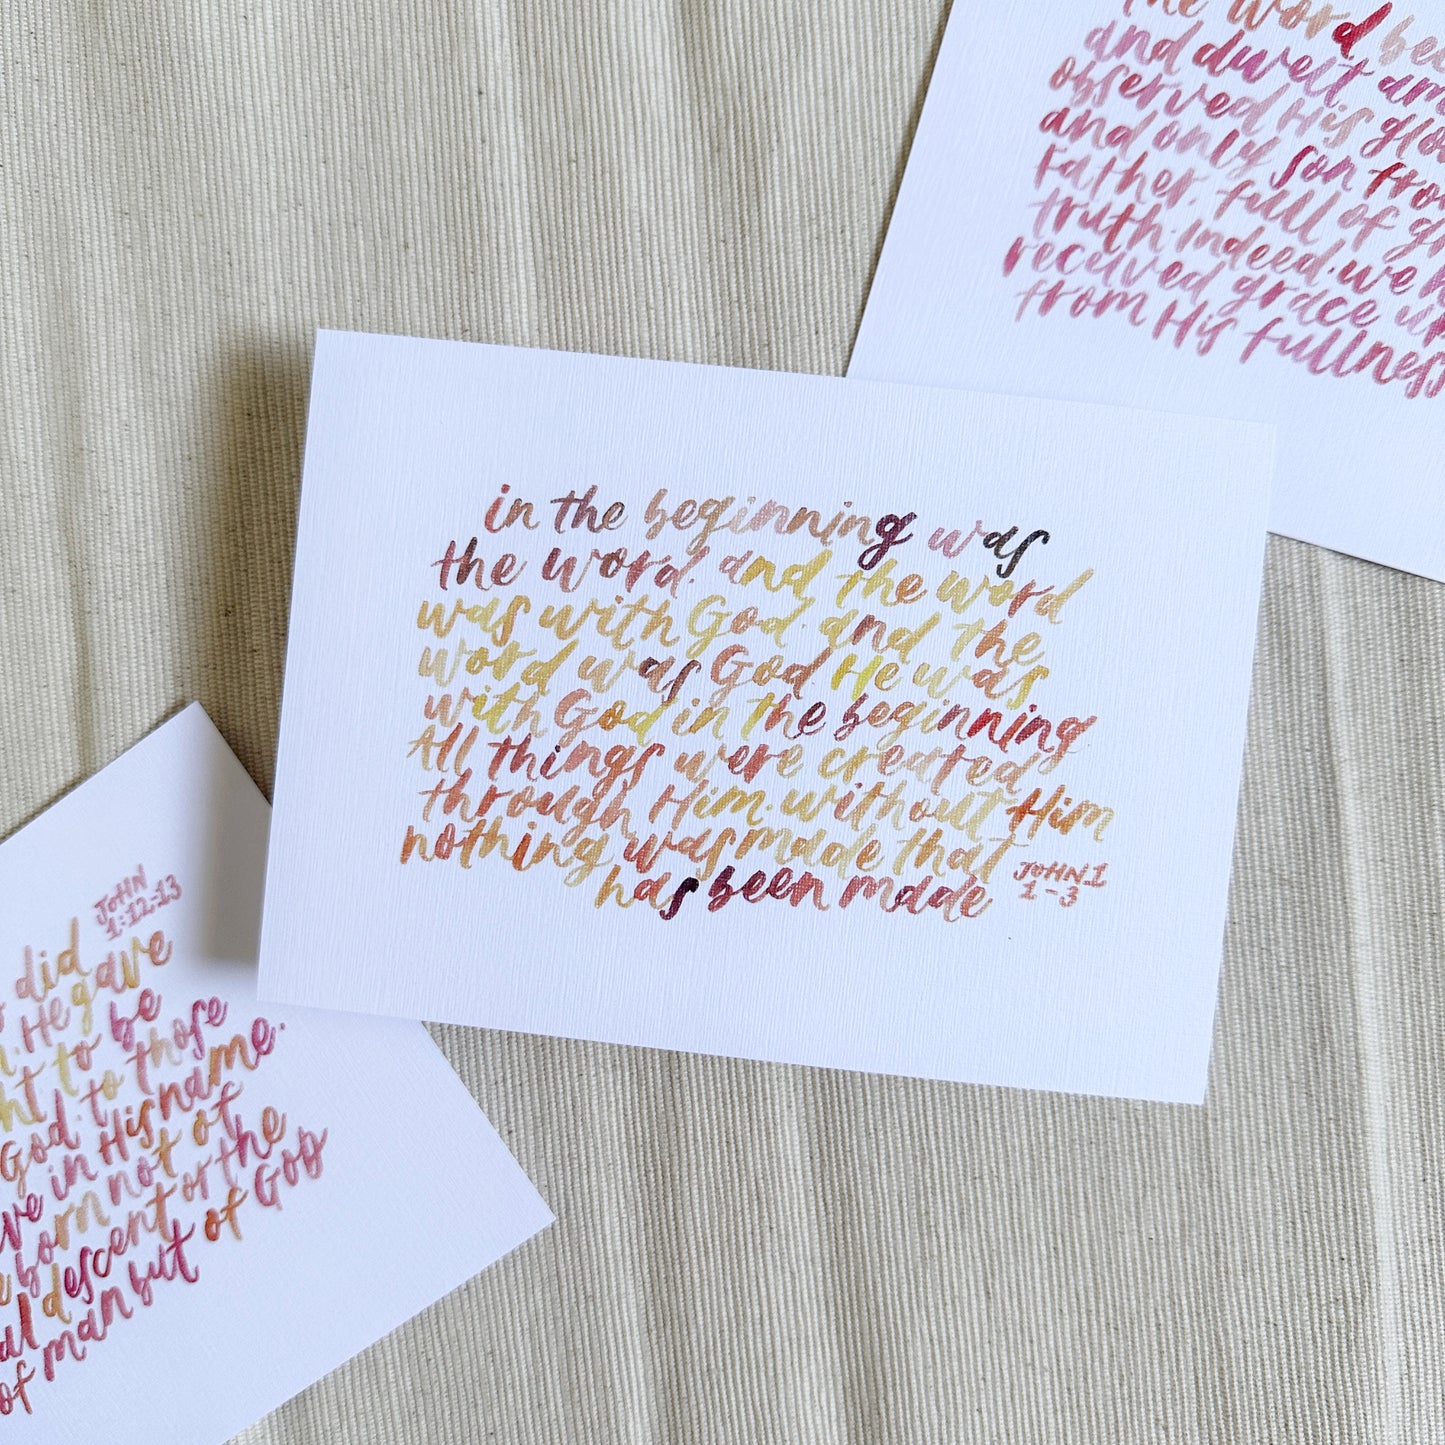 the word bec
and dwelt am
observed His glo
and only son fro
Father. full of gr
truth. indeed. we h
received grace up
from His fullness
in the beginning was
the word. and the word
was with God. and the
word was God. He was
with God in the beginning
All things were created
through Him. without Him
nothing was made that
has been made
JOHN 1
1-3
JOHN
1:12-13
did
. He gave
ht to be
God. to those
ve in His name.
born not of
descent or the
of man but of God